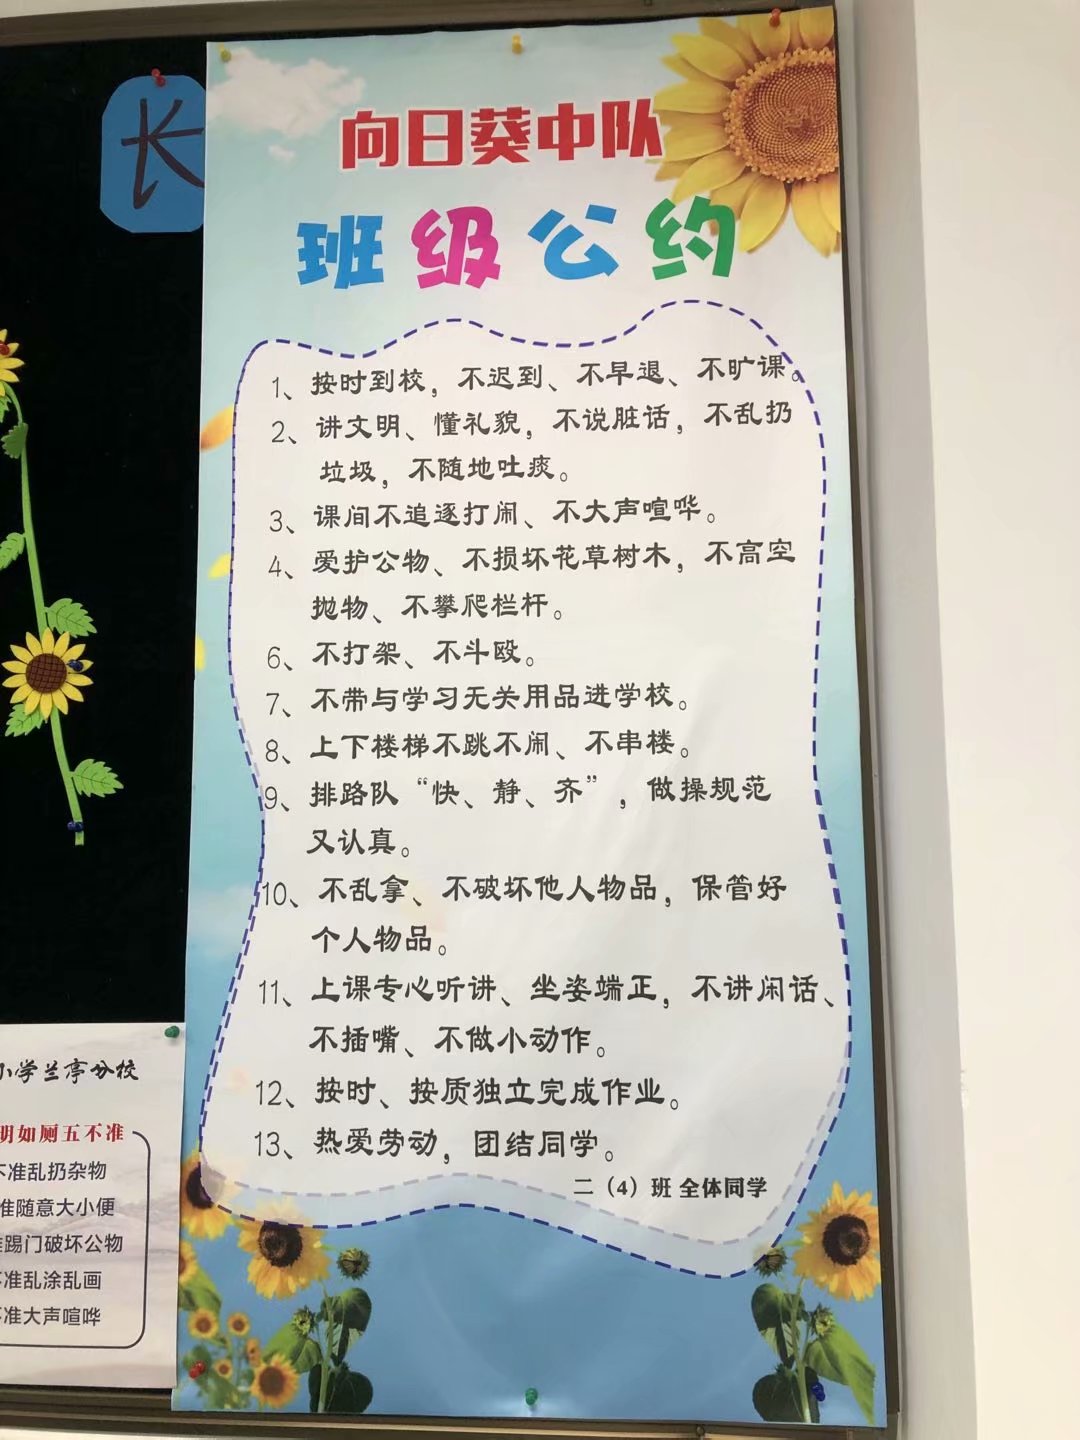 长
向日葵中队
班级公约
1、按时到校，不迟到、不早退、不旷课。
2、讲文明、懂礼貌，不说脏话，不乱扔
垃圾，不随地吐痰。
3、课间不追逐打闹、不大声喧哗。
4、爱护公物、不损坏花草树木，不高空
抛物、不攀爬栏杆。
6、不打架、不斗殴。
7、不带与学习无关用品进学校。
8、上下楼梯不跳不闹、不串楼。
9、排路队“快、静、齐”，做操规范
又认真。
10、不乱拿、不破坏他人物品，保管好
个人物品。
11、上课专心听讲、坐姿端正，不讲闲话、
不插嘴、不做小动作。
12、按时、按质独立完成作业。
13、热爱劳动，团结同学。
二（4）班 全体同学
小学兰亭分校
明如厕五不准
不准乱扔杂物
准随意大小便
准踢门破坏公物
不准乱涂乱画
不准大声喧哗